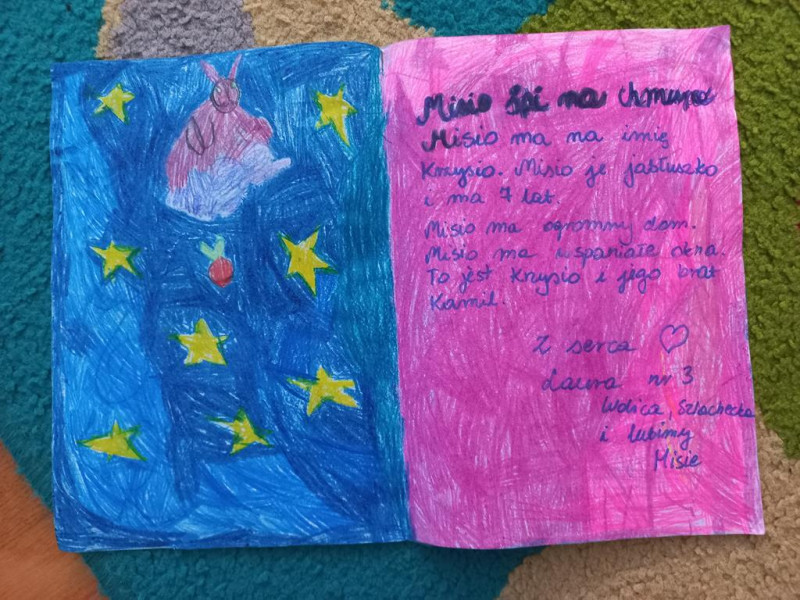 Misio śpi na chmurce
Misio ma na imię
Krzysio. Misio je jabłuszko
i ma 7 lat.
Misio ma ogromny dom.
Misio ma wspaniałe okna.
To jest Krzysio i jego brat
Kamil.
Z serca ♡
Laura nr 3
Wolica, Szlachecka
i lubimy
Misie